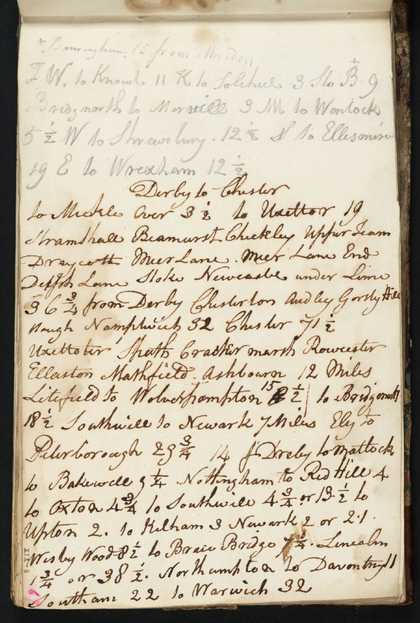 Birmingham 15 from
F W. to Knowle 11 K to Solihul 3 S to B 9
Bridgnorth to Morvill 3 M to Wenlock
5 1/2 W to Shrewsbury. 12 S to Ellesmire
19 E to Wrexham 12 1/2
Derby to Chester
to Mickle Over 3 1/2 to Uxettor 19
Stramshall Beamurst Checkley Uppir Team
Draycott Meer Lane. Meer Lane End
Lane Stoke Newcastle under Line
36 3/4 from Derby Chesterton Audley Gorsty Hill
Namptwich 52 Chester 71 1/2
Uxettoter Spath Crackermarsh Rowcester
Ellaston Mathfield Ashbourn 12 Miles
Litcfield to Wolverhampton 15 1/2 to Bridgnorth
18 1/2 Southwill to Newark 7 Miles Ely to
Peterborough 29 3/4 14 Dreby to Mattock
to Bakewell 9 1/4 Nottingham to Red Hill 4
to Oxton 4 3/4 to Southwill 4 3/4 or 13 1/2 to
Upton 2. to Kelham 3 Newark 2 or 21.
Wisby Wood 8 1/2 to Brace Bridge 7 3/4. Lincoln
1 3/4 or 38 1/2. Northampton to Daventry 11
Southam 22 to Warwich 32